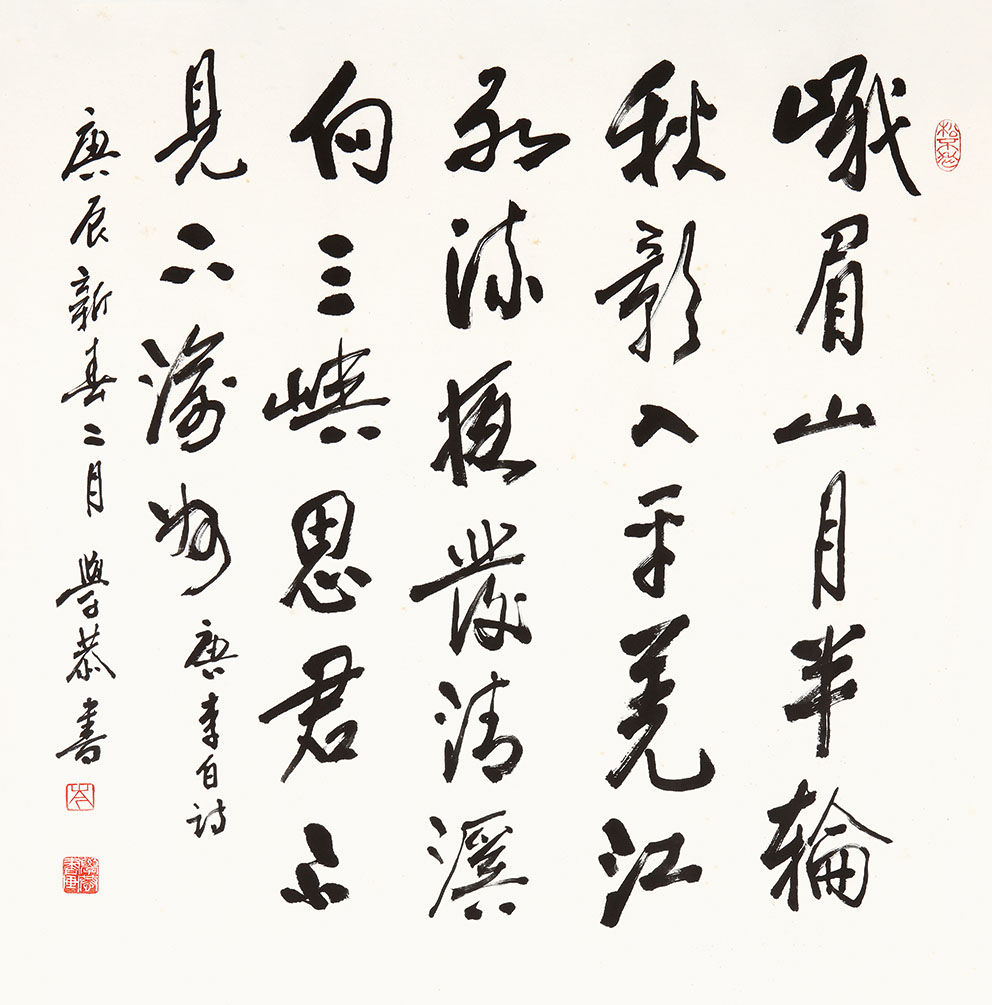 峨眉山月半輪
秋影入平羌江
水流夜發清溪
向三峽思君不
見下渝州
唐李白詩
庚辰新春二月 學恭書
岑
學恭書畫